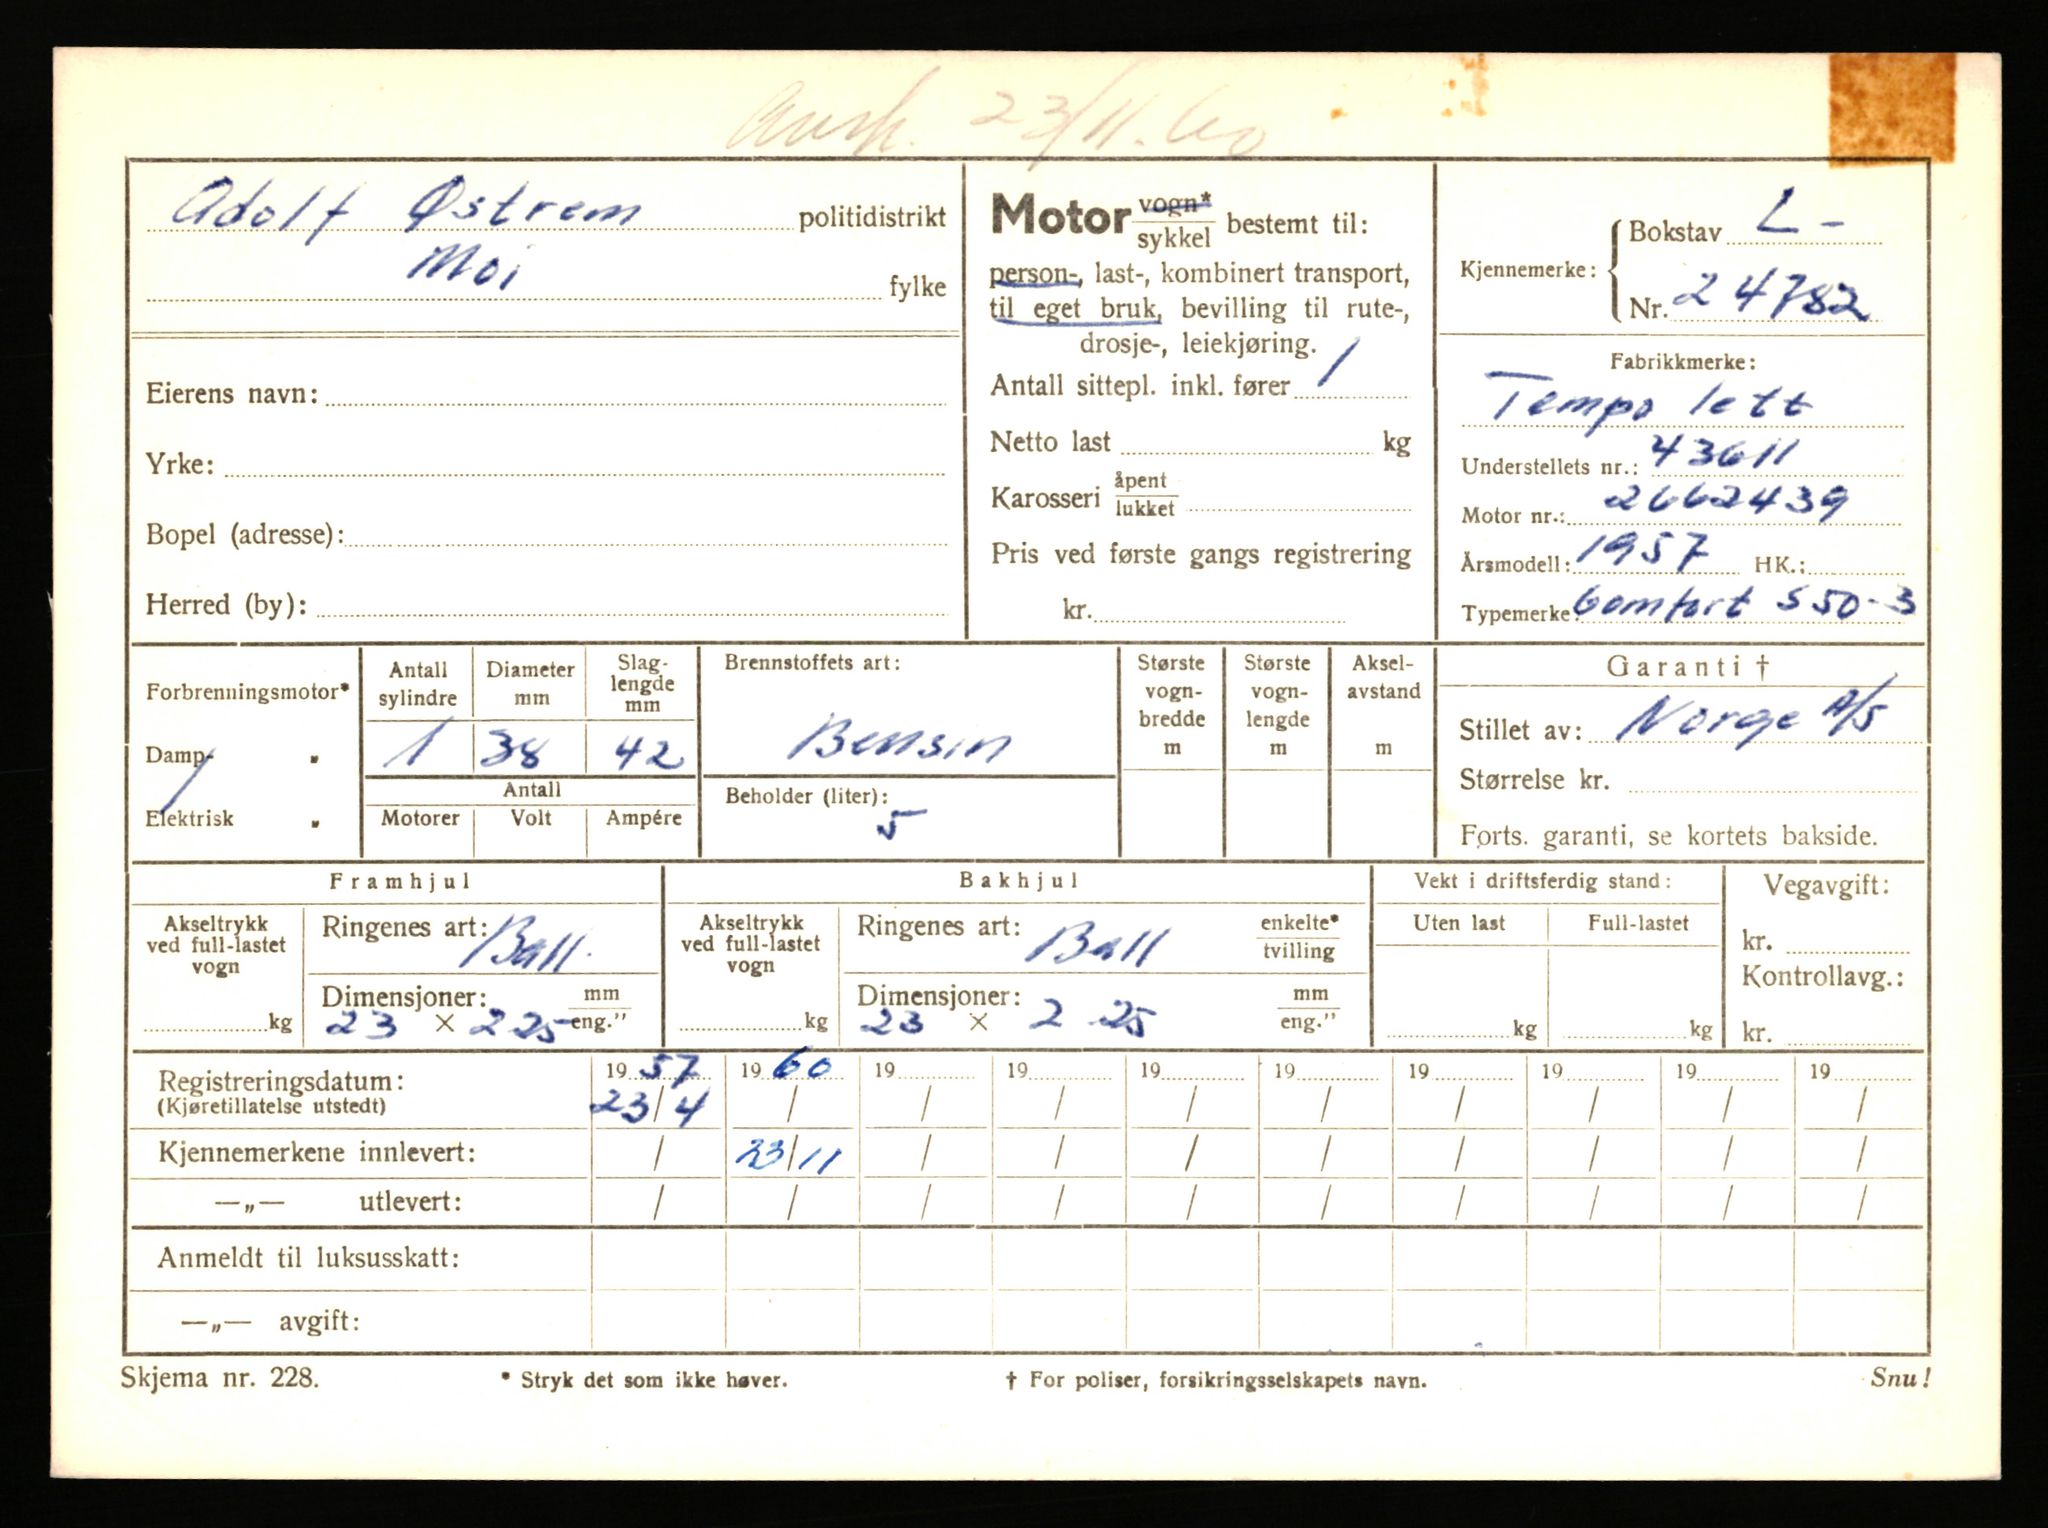 Avsk. 23/11.60
Adolf Østrem politidistrikt
Moi
fylke
Eierens navn:
Yrke:
Bopel (adresse):
Herred (by):
Motor vogn* / sykkel bestemt til:
person-, last-, kombinert transport,
til eget bruk, bevilling til rute-,
drosje-, leiekjøring.
Antall sittepl. inkl. fører 1
Netto last kg
Karosseri åpent / lukket
Pris ved første gangs registrering
kr.
Kjennemerke: Bokstav L -
Nr. 24782
Fabrikkmerke:
Tempo lett
Understellets nr.: 43611
Motor nr.: 2662439
Årsmodell: 1957 HK.:
Typemerke: Comfort S 50-3
Forbrenningsmotor*
Damp- "
Elektrisk "
Antall sylindre 1
Diameter mm 38
Slag-lengde mm 42
Antall
Motorer Volt Ampére
Brennstoffets art:
Bensin
Beholder (liter):
5
Største vogn-bredde m
Største vogn-lengde m
Aksel-avstand m
Garanti †
Stillet av: Norge A/S
Størrelse kr.
Forts. garanti, se kortets bakside.
Framhjul
Akseltrykk ved full-lastet vogn
kg
Ringenes art: Ball.
Dimensjoner: mm / eng."
23 x 2 25
Bakhjul
Akseltrykk ved full-lastet vogn
kg
Ringenes art: Ball enkelte* / tvilling
Dimensjoner: mm / eng."
23 x 2 25
Vekt i driftsferdig stand:
Uten last Full-lastet
kg kg
Vegavgift:
kr.
Kontrollavg.:
kr.
Registreringsdatum: 19 57 19 60 19 19 19 19 19 19 19 19
(Kjøretillatelse utstedt) 23/4 / / / / / / / / /
Kjennemerkene innlevert: / 23/11 / / / / / / / /
—„— utlevert: / / / / / / / / / /
Anmeldt til luksusskatt:
—„— avgift:
Skjema nr. 228. * Stryk det som ikke høver. † For poliser, forsikringsselskapets navn. Snu!